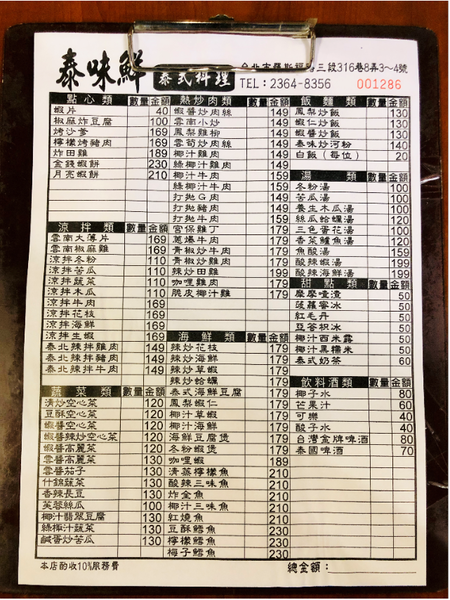 泰味鮮 泰式料理
三段316巷8弄3~4號
TEL:2364-8356
001286
點心類 數量 金額
蝦片 40
椒麻炸豆腐 100
烤沙爹 169
檸檬烤豬肉 169
炸田雞 189
金錢蝦餅 230
月亮蝦餅 210
涼拌類 數量 金額
雲南大薄片 169
雲南椒麻雞 169
涼拌冬粉
涼拌苦瓜
涼拌蔬菜
涼拌木瓜
涼拌牛肉
涼拌花枝
涼拌海鮮
涼拌生蝦 169
泰北辣拌雞肉 149
泰北辣拌豬肉 149
泰北辣拌牛肉 149
蔬菜類 數量 金額
清炒空心菜 120
豆酥空心菜 120
蝦醬空心菜 120
蝦醬辣炒空心菜 130
蝦醬高麗菜 130
雲醬高麗菜 130
雲醬茄子 130
什錦蔬菜 130
香辣長豆 130
芙蓉絲瓜 100
椰汁翡翠豆腐 130
綠椰汁蔬菜 130
鹹蛋炒苦瓜 130
熱炒肉類 數量 金額
蝦醬炒肉絲 149
雲南小炒 149
鳳梨雞柳 149
雲筍炒肉絲 149
椰汁雞肉 149
綠椰汁雞肉 149
椰汁牛肉 149
綠椰汁牛肉
打拋豬肉
打拋牛肉
宮保雞丁
蔥爆牛肉
青椒炒牛肉 179
青椒炒雞肉 179
辣炒田雞 179
咖哩雞 179
脆皮椰汁雞 179
海鮮類 數量 金額
辣炒花枝 179
辣炒海鮮 179
辣炒草蝦 179
辣炒蛤蠣 179
泰式海鮮豆腐
鳳梨蝦仁
椰汁草蝦
椰汁海鮮
海鮮豆腐煲
冬粉蝦煲 179
咖哩蝦 189
清蒸檸檬魚 210
酸辣三味魚 210
炸全魚 210
椰汁三味魚 210
紅燒魚 210
豆酥鱈魚 230
檸檬鱈魚 230
梅子鱈魚 230
飯麵類 數量 金額
鳳梨炒飯 130
蝦仁炒飯 130
蝦醬炒飯 130
泰味炒河粉 140
白飯(每位) 20
湯類 數量 金額
冬粉湯 100
苦瓜湯 100
養生木瓜湯 100
絲瓜蛤蠣湯 120
三色蛋花湯 100
香菜鱸魚湯 120
魚酸湯 159
酸辣蝦湯 199
酸辣海鮮湯 199
甜點類 數量 金額
摩摩喳渣 50
菠蘿蜜冰 50
紅毛丹 50
椰汁西米露 50
椰汁黑糯米 50
泰式奶茶 60
飲料酒類 數量 金額
椰子水 80
芒果汁 60
可樂 40
酸子水 40
台灣金牌啤酒 80
泰國啤酒 70
本店酌收10%服務費
總金額: